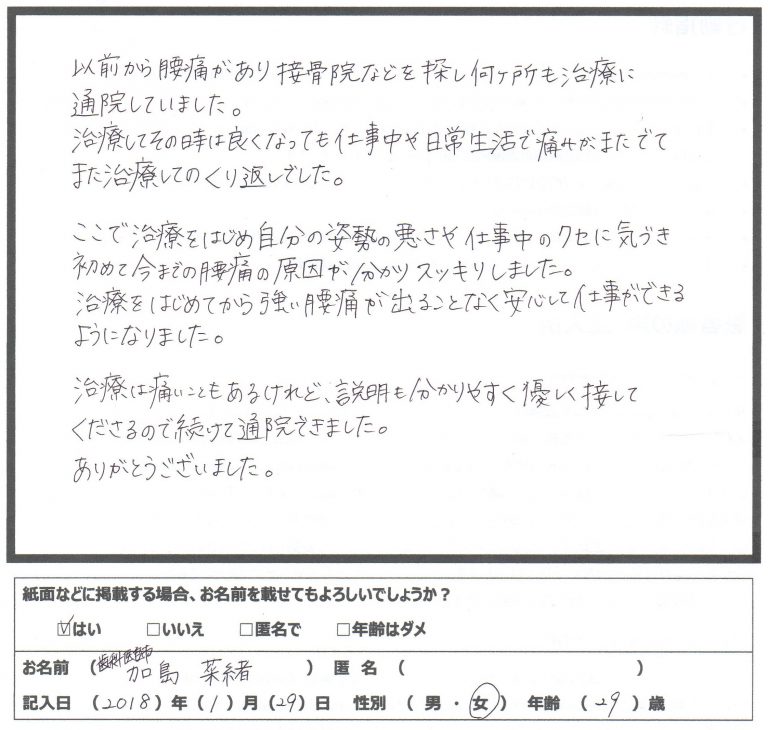 以前から腰痛があり接骨院などを探し何ヶ所も治療に
通院していました。
治療してその時は良くなっても仕事中や日常生活で痛みがまたでて
また治療してのくり返しでした。
ここで治療をはじめ自分の姿勢の悪さや仕事中のクセに気づき
初めて今までの腰痛の原因が分かりスッキリしました。
治療をはじめてから強い腰痛が出ることなく安心して仕事ができる
ようになりました。
治療は痛いこともあるけれど、説明も分かりやすく優しく接して
くださるので続けて通院できました。
ありがとうございました。
紙面などに掲載する場合、お名前を載せてもよろしいでしょうか?
☑はい □いいえ □匿名で □年齢はダメ
歯科医師
お名前 (加島 菜緒) 匿名 ( )
記入日 (2018)年(1)月(29)日 性別 (男・女) 年齢 (29)歳